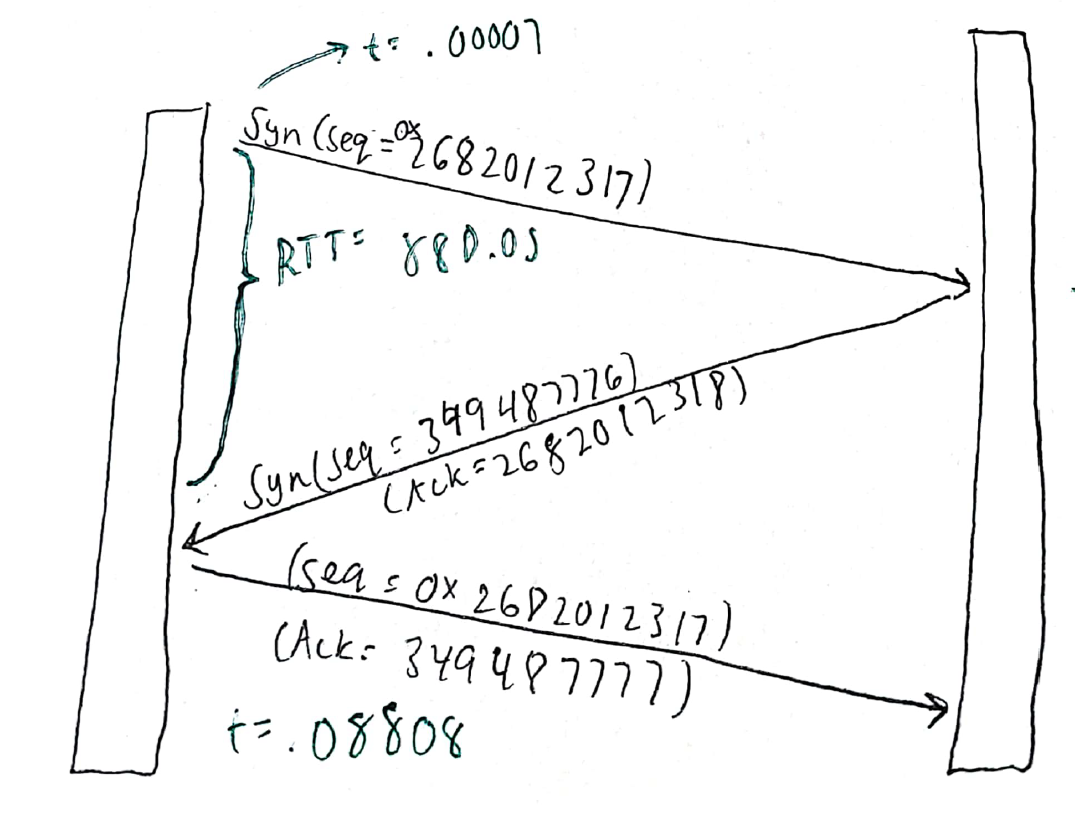 t= .00007
Syn (seq = 0x2682012317)
RTT= 880.0s
Syn (seq = 3494487776)
(Ack = 2682012318)
(seq = 0x2682012317)
(Ack= 3494487777)
t=.08808